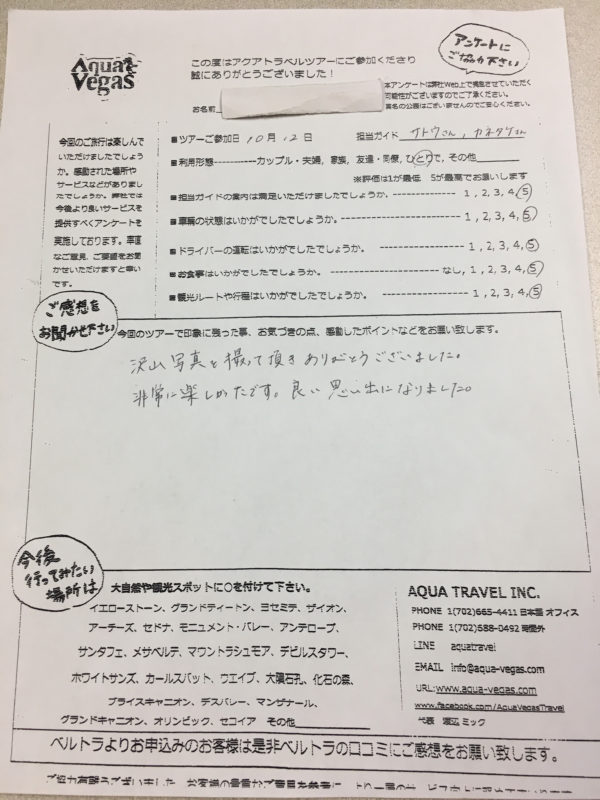 Aqua
Vegas
この度はアクアトラベルツアーにご参加くださり
誠にありがとうございました！
アンケートに
ご協力下さい
本アンケートは弊社Web上で掲載させていただく
可能性がございますのでご了承ください。
実名の公表はございませんのでご安心ください。
お名前
今回のご旅行は楽しんで
いただけましたでしょう
か。感動された場所や
サービスなどがありまし
たでしょうか。弊社では
今後より良いサービスを
提供すべくアンケートを
実施しております。率直
なご意見、ご要望をお聞
かせいただけますと幸い
です。
■ツアーご参加日 10月12日 担当ガイド サトウさん，カネタケさん
■利用形態-----------カップル・夫婦, 家族, 友達・同僚, ひとりで, その他
※評価は1が最低 5が最高でお願いします
■担当ガイドの案内は満足いただけましたでしょうか。---------------- 1, 2, 3, 4, 5
■車輛の状態はいかがでしたでしょうか。---------------- 1, 2, 3, 4, 5
■ドライバーの運転はいかがでしたでしょうか。---------------- 1, 2, 3, 4, 5
■お食事はいかがでしたでしょうか。---------------- なし, 1, 2, 3, 4, 5
■観光ルートや行程はいかがでしたでしょうか。---------------- 1, 2, 3, 4, 5
ご感想を
お聞かせ下さい
今回のツアーで印象に残った事、お気づきの点、感動したポイントなどをお願い致します。
沢山写真を撮って頂きありがとうございました。
非常に楽しかったです。良い思い出になりました。
今後
行ってみたい
場所は
大自然や観光スポットに○を付けて下さい。
イエローストーン、グランドティートン、ヨセミテ、ザイオン、
アーチーズ、セドナ、モニュメント・バレー、アンテロープ、
サンタフェ、メサベルテ、マウントラシュモア、デビルスタワー、
ホワイトサンズ、カールスバット、ウエイブ、大隕石孔、化石の森、
ブライスキャニオン、デスバレー、マンザナール、
グランドキャニオン、オリンピック、セコイア その他
AQUA TRAVEL INC.
PHONE 1(702)665-4411 日本語 オフィス
PHONE 1(702)588-0492 時間外
LINE aquatravel
EMAIL info@aqua-vegas.com
URL:www.aqua-vegas.com
www.facebook.com/AquaVegasTravel
代表 渡辺 ミック
ベルトラよりお申込みのお客様は是非ベルトラの口コミにご感想をお願い致します。